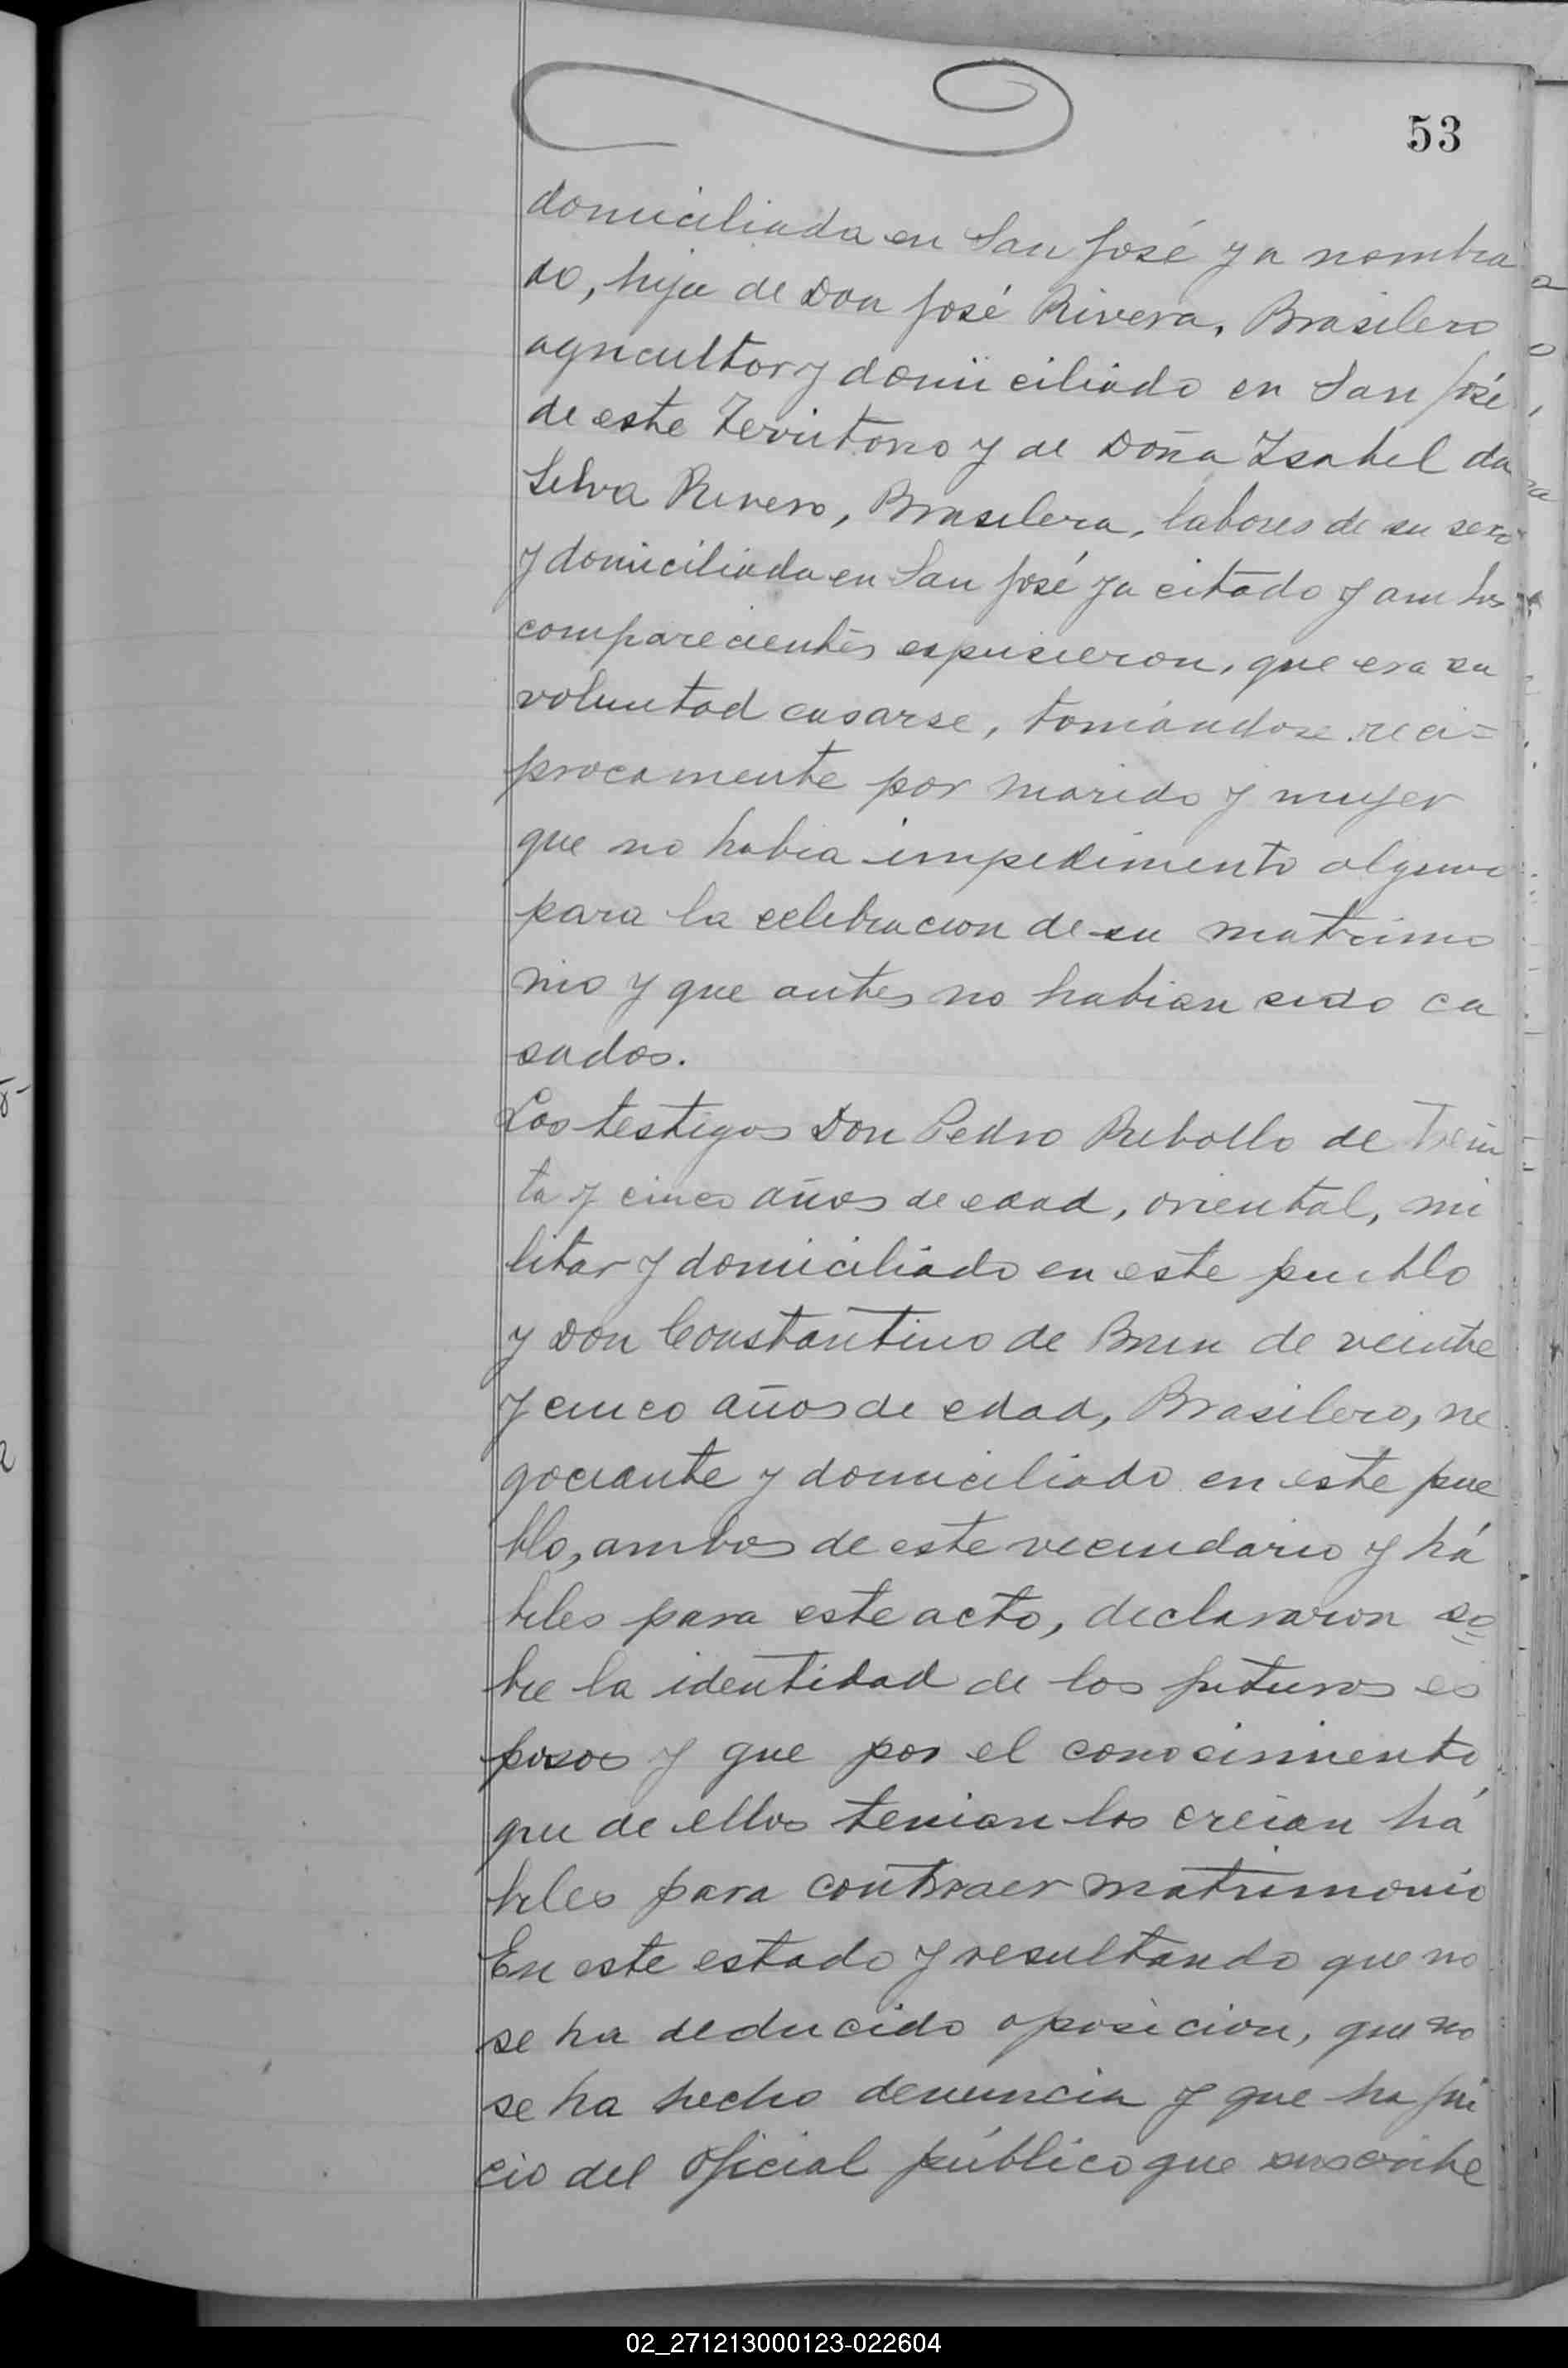 53
domiciliada en San José ya nombra
do, hija de Don José Rivera, Brasilero
agricultor y domiciliado en San José
de este Territorio y de Doña Isabel da
Silva Rivero, Brasilera, labores de su sexo
y domiciliada en San José ya citado y ambos
comparecientes espusieron, que era su
voluntad casarse, tomándose reci=
procamente por marido y mujer
que no habia impedimento alguno
para la celebracion de su matrimo
nio y que antes no habian sido ca
sados.
Los testigos Don Pedro Rebollo de trein
ta y cinco años de edad, oriental, mi
litar y domiciliado en este pueblo
y Don Constantino de Brun de veinte
y cinco años de edad, Brasilero, ne
gociante y domiciliado en este pue
blo, ambos de este vecindario y há
biles para este acto, declararon so
bre la identidad de los futuros es
posos y que por el conocimiento
que de ellos tenian los creian há
biles para contraer matrimonio
En este estado y resultando que no
se ha deducido oposicion, que no
se ha hecho denuncia y que ha jui
cio del oficial público que suscribe
02_271213000123-022604